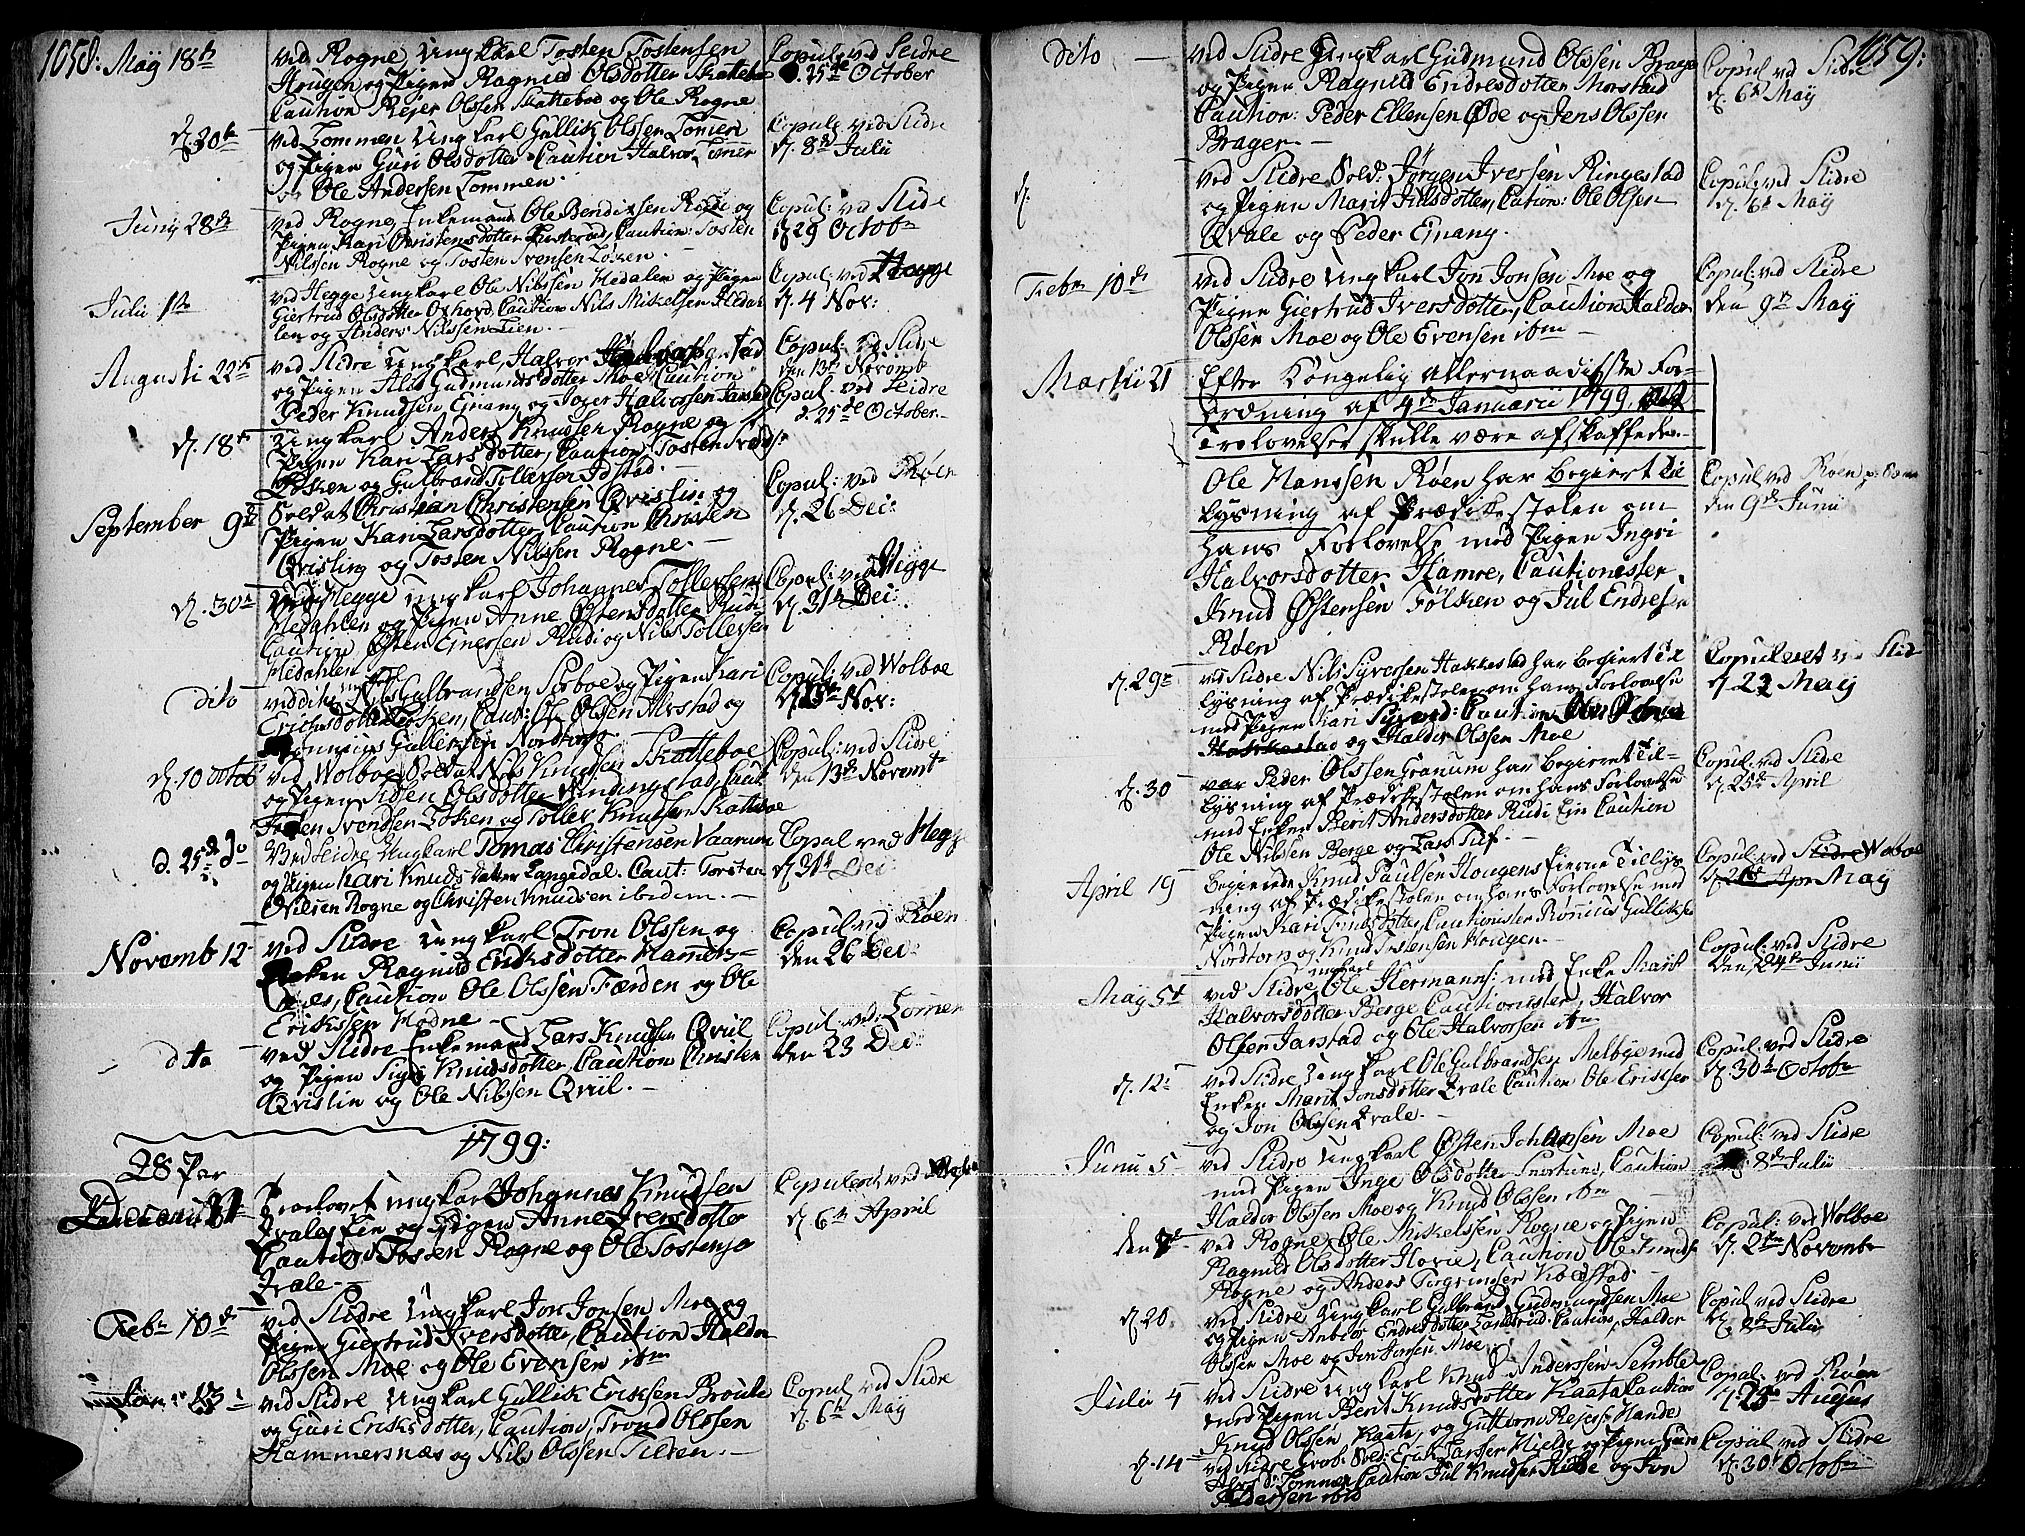 1058: Maÿ 18de
ved Rogne, Ungkarl Tosten Tostensen
Hougen og Pigen Ragnild Olsdotter Skattebo
Caution Rejer Olssen Skattebod og Ole Rogne
Copul: ved Sleidre
d. 25de October
d. 30te
ved Lommen Ungkarl Gullik Olssen Lomen
og Pigen Guri Olsdotter Caution Halvor Lomen
og Ole Andersen Lommen.
Copul: ved Slidre
d. 8de Julii
Junÿ 28de
ved Rogne, Enkemand Ole Bendixsen Rudi og
Pigen Kari Christensdotter Caution: Tosten
Nilssen Rogne og Tosten Svensen Løken.
Copul: ved Slidre
d. 29 Octob
Julii 1ste
ved Hegge Ungkarl Ole Nilssen Hedalen og Pigen
Giertrud Olsdotter Oxhovd, Caution Nils Mikelsen Hedalen
len og Anders Nilssen Lien.
Copul: ved Hegge
d. 4 Nov:
Augusti 22de
ved Slidre Ungkarl, Halvor
og Pigen Alis Gudmundsdotter Moe, Caution
Peder Knudsen Einang og Halvorssen Jarstad
Copul: ved Slidre
den 13de Novemb
d. 18de
Ungkarl Anders Knudsen Rogne og
Pigen Kari Larsdotter, Caution, Tosten Svends:
Løken og Gulbrand Tollersen Idstad.
Copul. ved Sleidre
d. 25de October
September 9de
Soldat Christian Christensen Qvislin og
Pigen Kari Larsdotter, Caution Christen
Qvisling og Tosten Nilssen Rogne.
Copul: ved Røen
d. 26 Dec:
d. 30te
ved Hegge Ungkarl Johannes Tollersen
Medahlen og Pigen Anne Østensdotter Rudi
Caution Østen Einersen Rudi og Nils Tollersen
Medahlen
Copul: ved Hegge
d. 31te Dec:
dito
Gulbrandsen Sørboe og Pigen Kari
Erichsdotter Løken, Caut: Ole Olssen Alvstad og
Rønnius Gullikssen Nordtorp
Copul: ved Wolboe
Nov:
d. 10 Octob
ved Wolboe Soldat Nils Knudsen Skatteboe
og Pigen Sidsen Olsdotter Vindingstad, Caut
Tosten Svendsen Løken og Toller Knudsen Skatteboe
Copul: ved Slidre
den 13de Novembr
d. 25de
Ved Sleidre Ungkarl Tomas Christensen Vaarum
og Pigen Kari Knuds datter Langedal. Caut: Torsten
Nilsen Rogne og Christen Knudsen ibidem.
Copul ved Hegge
d. 31te Dec:
Novemb 12
ved Slidre Ungkarl Tron Olssen og
Enken Ragnild Eriksdotter Hamers-
næs, Caution Ole Olssen Færden og Ole
Erikssen Hodne
Copul: ved Røen
den 26 Dec:
dito
ved Slidre Enkemand Lars Knudsen Qviil
og Pigen Sigri Knudsdotter, Caution Christen
Qvislin og Ole Nilssen Qviil.
Copul: ved: Lomen
den 23 Dec:
28 Par
1799:
Januarii 31
Trolovet ungkarl Johannes Knudsen
Qvales Eie og Pigen Anne Iversdotter
Caution Tosten Rogne og Ole Tostensen
Qvale
Copuleret ved
d. 6te April
Febr 10de
ved Slidre Ungkarl Jon Jonsen Moe og
Pigen Giertrud Iversdotter, Caution Haldor
Olssen Moe og Ole Evensen ibm
ved Slidre Ungkarl Gullik Eriksen Brouke
og Guri Eriksdotter, Caution, Trond Olssen
Hammersnæs og Nils Olssen Tilden.
Copul ved Slidre
d. 6te Maÿ
1059:
dito
ved Slidre Ungkarl Gudmund Olssen Brager
og Pigen Ragnild Endresdotter Morstad
Caution: Peder Ellensen Øde og Jens Olssen
Brager.
Copul ved Slidre
d. 6te Maÿ
d.
ved Slidre Sold: Jørgen Iversen Ringestad
og Pigen Marit Julsdotter, Cation: Ole Olsen
Qvale og Peder Einang.
Copul: ved Slidre
d. 6te Maÿ
Febr 10de
ved Slidre Ungkarl Jon Jonsen Moe og
Pigen Giertrud Iversdotter, Caution Haldor
Olssen Moe og Ole Evensen ibm
Copul: ved Slidre
den 9de Maÿ
Martii 21
Efter Kongelig allernaadigste For-
ordning af 4de Januarii 1799. at
Trolovelser skulle være afskaffede.
Ole Hanssen Røen har begiert Til
lysning af Prædikestolen om
hans Forlovelse med Pigen Ingri
Halvorsdotter Hamre, Cautionister
Knud Østensen Følsken og Jul Endresen
Røen
Copul ved Røen
den 9de Junii
d. 29de
ved Slidre Nils Syversen Hakkestad har begiert Til
lysning af Prædikestolen om hans Forlovelse
med Pigen Kari Syvers: Caution
Hakkestad og Haldor Olssen Moe
Copuleret ved Slid
d. 22 Maÿ
d. 30
var Peder Olssen Granum har begieret Til-
lysning af Prædikestolen om hans Forlovelse
med Enken Berit Andersdotter Rudi Eie Caution
Ole Nilssen Berge og Lars Tuf.
Copul: ved Slidre
d. 25de April
April 19
begierede Knud Paulsen Hougens Eierne Tillys
ning af Prædikestolen om hans Forlovelse med
Pigen Kari Knudsdotter, Cautionister Rønnius Gulliksen
Nordtorp og Knud Tostensen Hougen.
Copul: ved Slidre Wolboe
d. 21de Apr Maÿ
Maÿ 5te
ved Slidre Ungkarl Ole Hermanns: med Enke Marit
Halvorsdotter Berge Cautionister, Halvor
Olsen Jarstad og Ole Halvorsen ibm
Copul: ved Slidre
den 24de Junii
d. 12te
ved Slidre Ungkarl Ole Gulbrandsen Melbÿe med
Enken Marit Jonsdotter Qvale Caution Ole Eriksen
og Jon Olssen Qvale.
Copul: ved Slidre
d. 30te Octobr
Junii 5
ved Slidre Ungkarl Østen Johansen Moe
med Pigen Inge Olsdotter, Caution
Haldor Olssen Moe og Knud Olssen ibm
Copul: ved Slidre
8de Julii
den
ved Rogne, Ole Mikelssen Rogne og Pigen
Ragnild Olsdotter Hovie, Caution Ole Knudsen
Rogne og Anders Torgrimsen Kodstad.
Copul: ved Wolboe
d. 2den Novembr
d. 20
ved Slidre Ungkarl Gulbrand Gudmundsen Moe
og Pigen Anbiør Endresdotter Landsrud, Caution, Haldor
Olssen Moe og Jon Jonsen Moe.
Copul ved Slidre
d. 8de Julii
Julii 4
ved Slidre Ungkarl Knud Anderssen Semble
med Pigen Berit Knudsdotter Kaata Caution
Knud Olssen Kaata, og Guttorm Rejers: Hande
Copul: ved Røen
d. 25de Augus
d. 14
ved Slidre Erik Larssen Hielde og Pigen Guri
Lommen Caution Jul Knudsen og Iver
Aldersen ibid
Copul ved Slidre
d. 30te Octobr